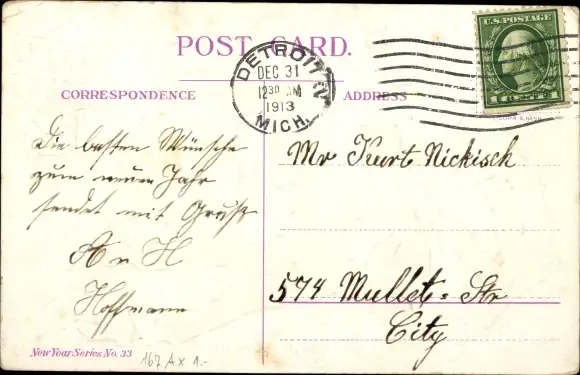 POST CARD.
DETROIT
DEC 31
12 30 AM
1913
MICH.
U.S. POSTAGE
1 CENTS 1
CORRESPONDENCE
ADDRESS
Die besten Wünsche
zum neuen Jahr
sendet mit Gruß
A u H
Hoffmann
Mr Kurt Nickisch
574 Mullet-Str
City
New Year Series No. 33
167 A x 1.-